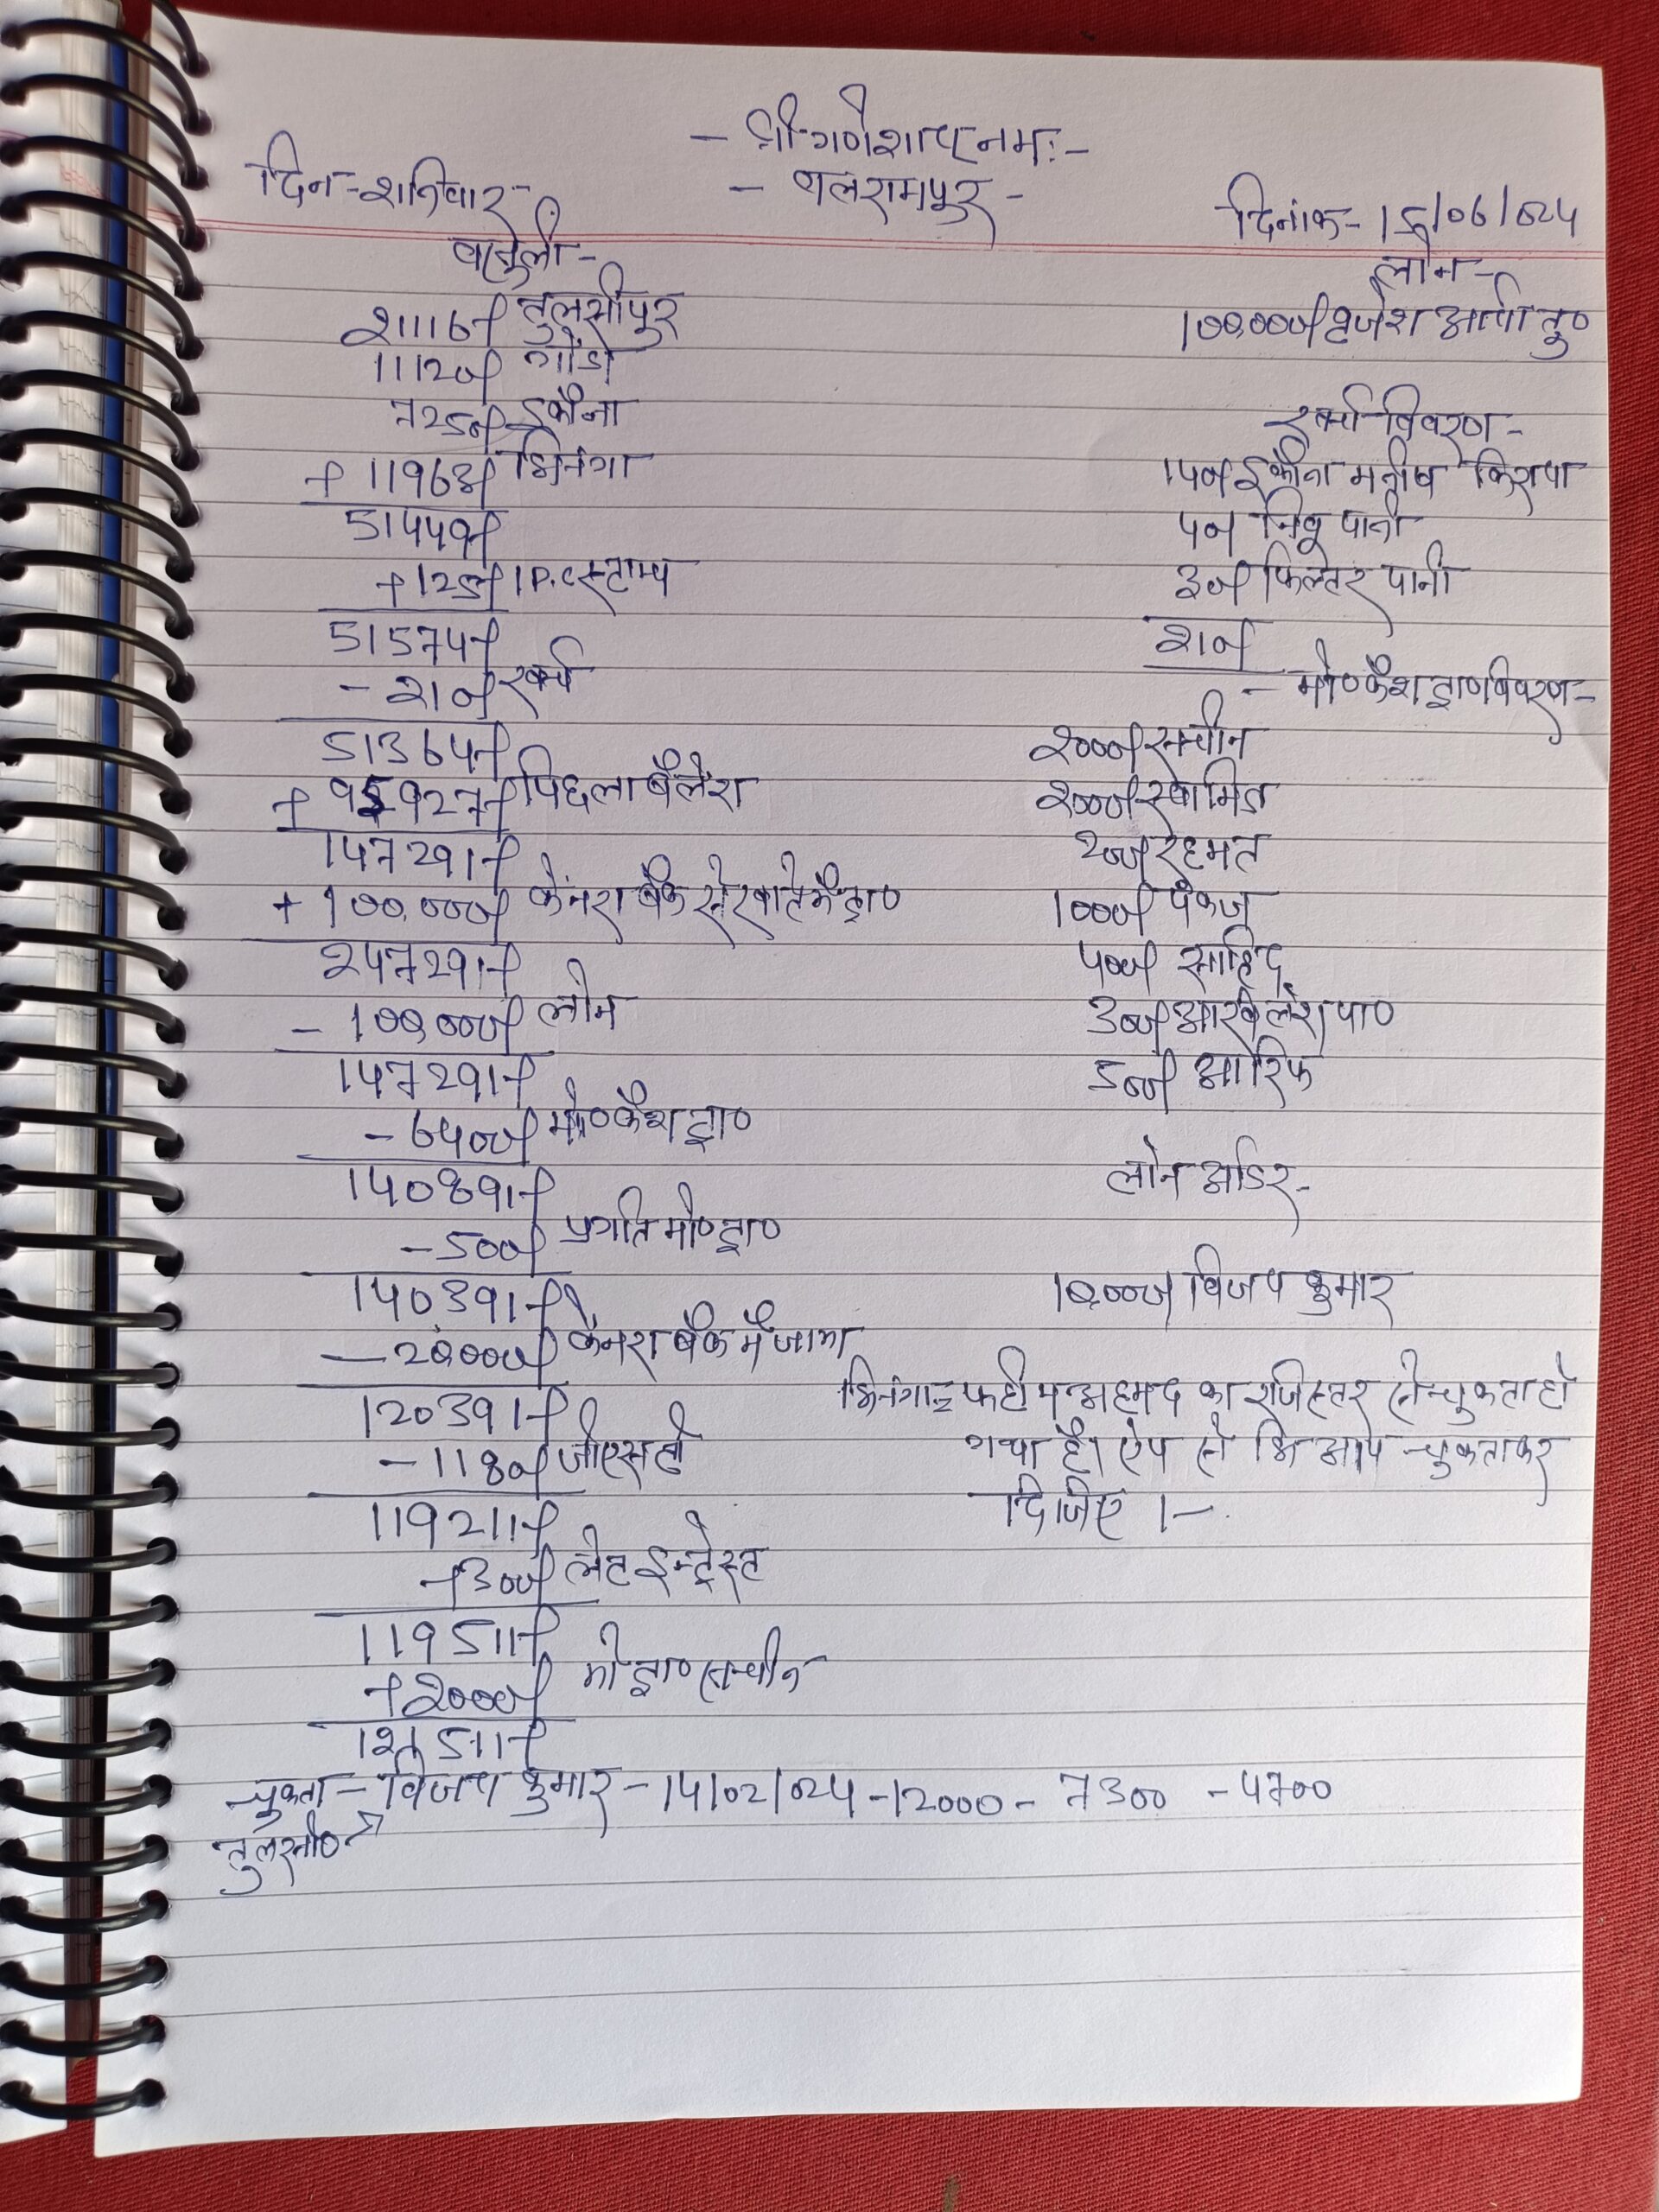 - श्री गणेशाय नमः -
दिन - शनिवार -
- बलरामपुर -
दिनांक - 15/06/024
वसुली -
21116/- तुलसीपुर
11120/- गोंडा
7250/- इकौना
+ 11963/- भिनगा
51449/-
+ 125/- 1 P.C स्टाम्प
51574/-
- 210/- खर्च
51364/-
+ 95927/- पिछला बैलेंस
147291/-
+ 100,000/- केनरा बैंक से खाते में ट्रा०
247291/-
- 100,000/- लोन
147291/-
- 6400/- मो० कैश ट्रा०
140891/-
- 500/- प्रगति मो० ट्रा०
140391/-
- 20,000/- केनरा बैंक में जमा
120391/-
- 1180/- जीएसटी
119211/-
+ 300/- लेट इन्ट्रेस्ट
119511/-
+ 2000/- मो ट्रा० सचीन
121511/-
लोन -
100,000/- बृजेश आर्या तु०
खर्चा विवरण -
140/- इकौना मनीष किराया
40/- निबू पानी
30/- फिल्टर पानी
210/-
- मो० कैश ट्रा० विवरण -
2000/- सचीन
2000/- स्वामित
200/- रहमत
1000/- पंकज
400/- साहिद
300/- अखिलेश पा०
500/- आरिफ
लोन आर्डर -
10,000/- विजय कुमार
भिनगा फहीम अहमद का रजिस्टर से चुकता हो
गया है। ऐप से भि आप चुकता कर
दिजिए ।-
चुकता - विजय कुमार - 14/02/024 - 12000 - 7300 - 4700
तुलसी०